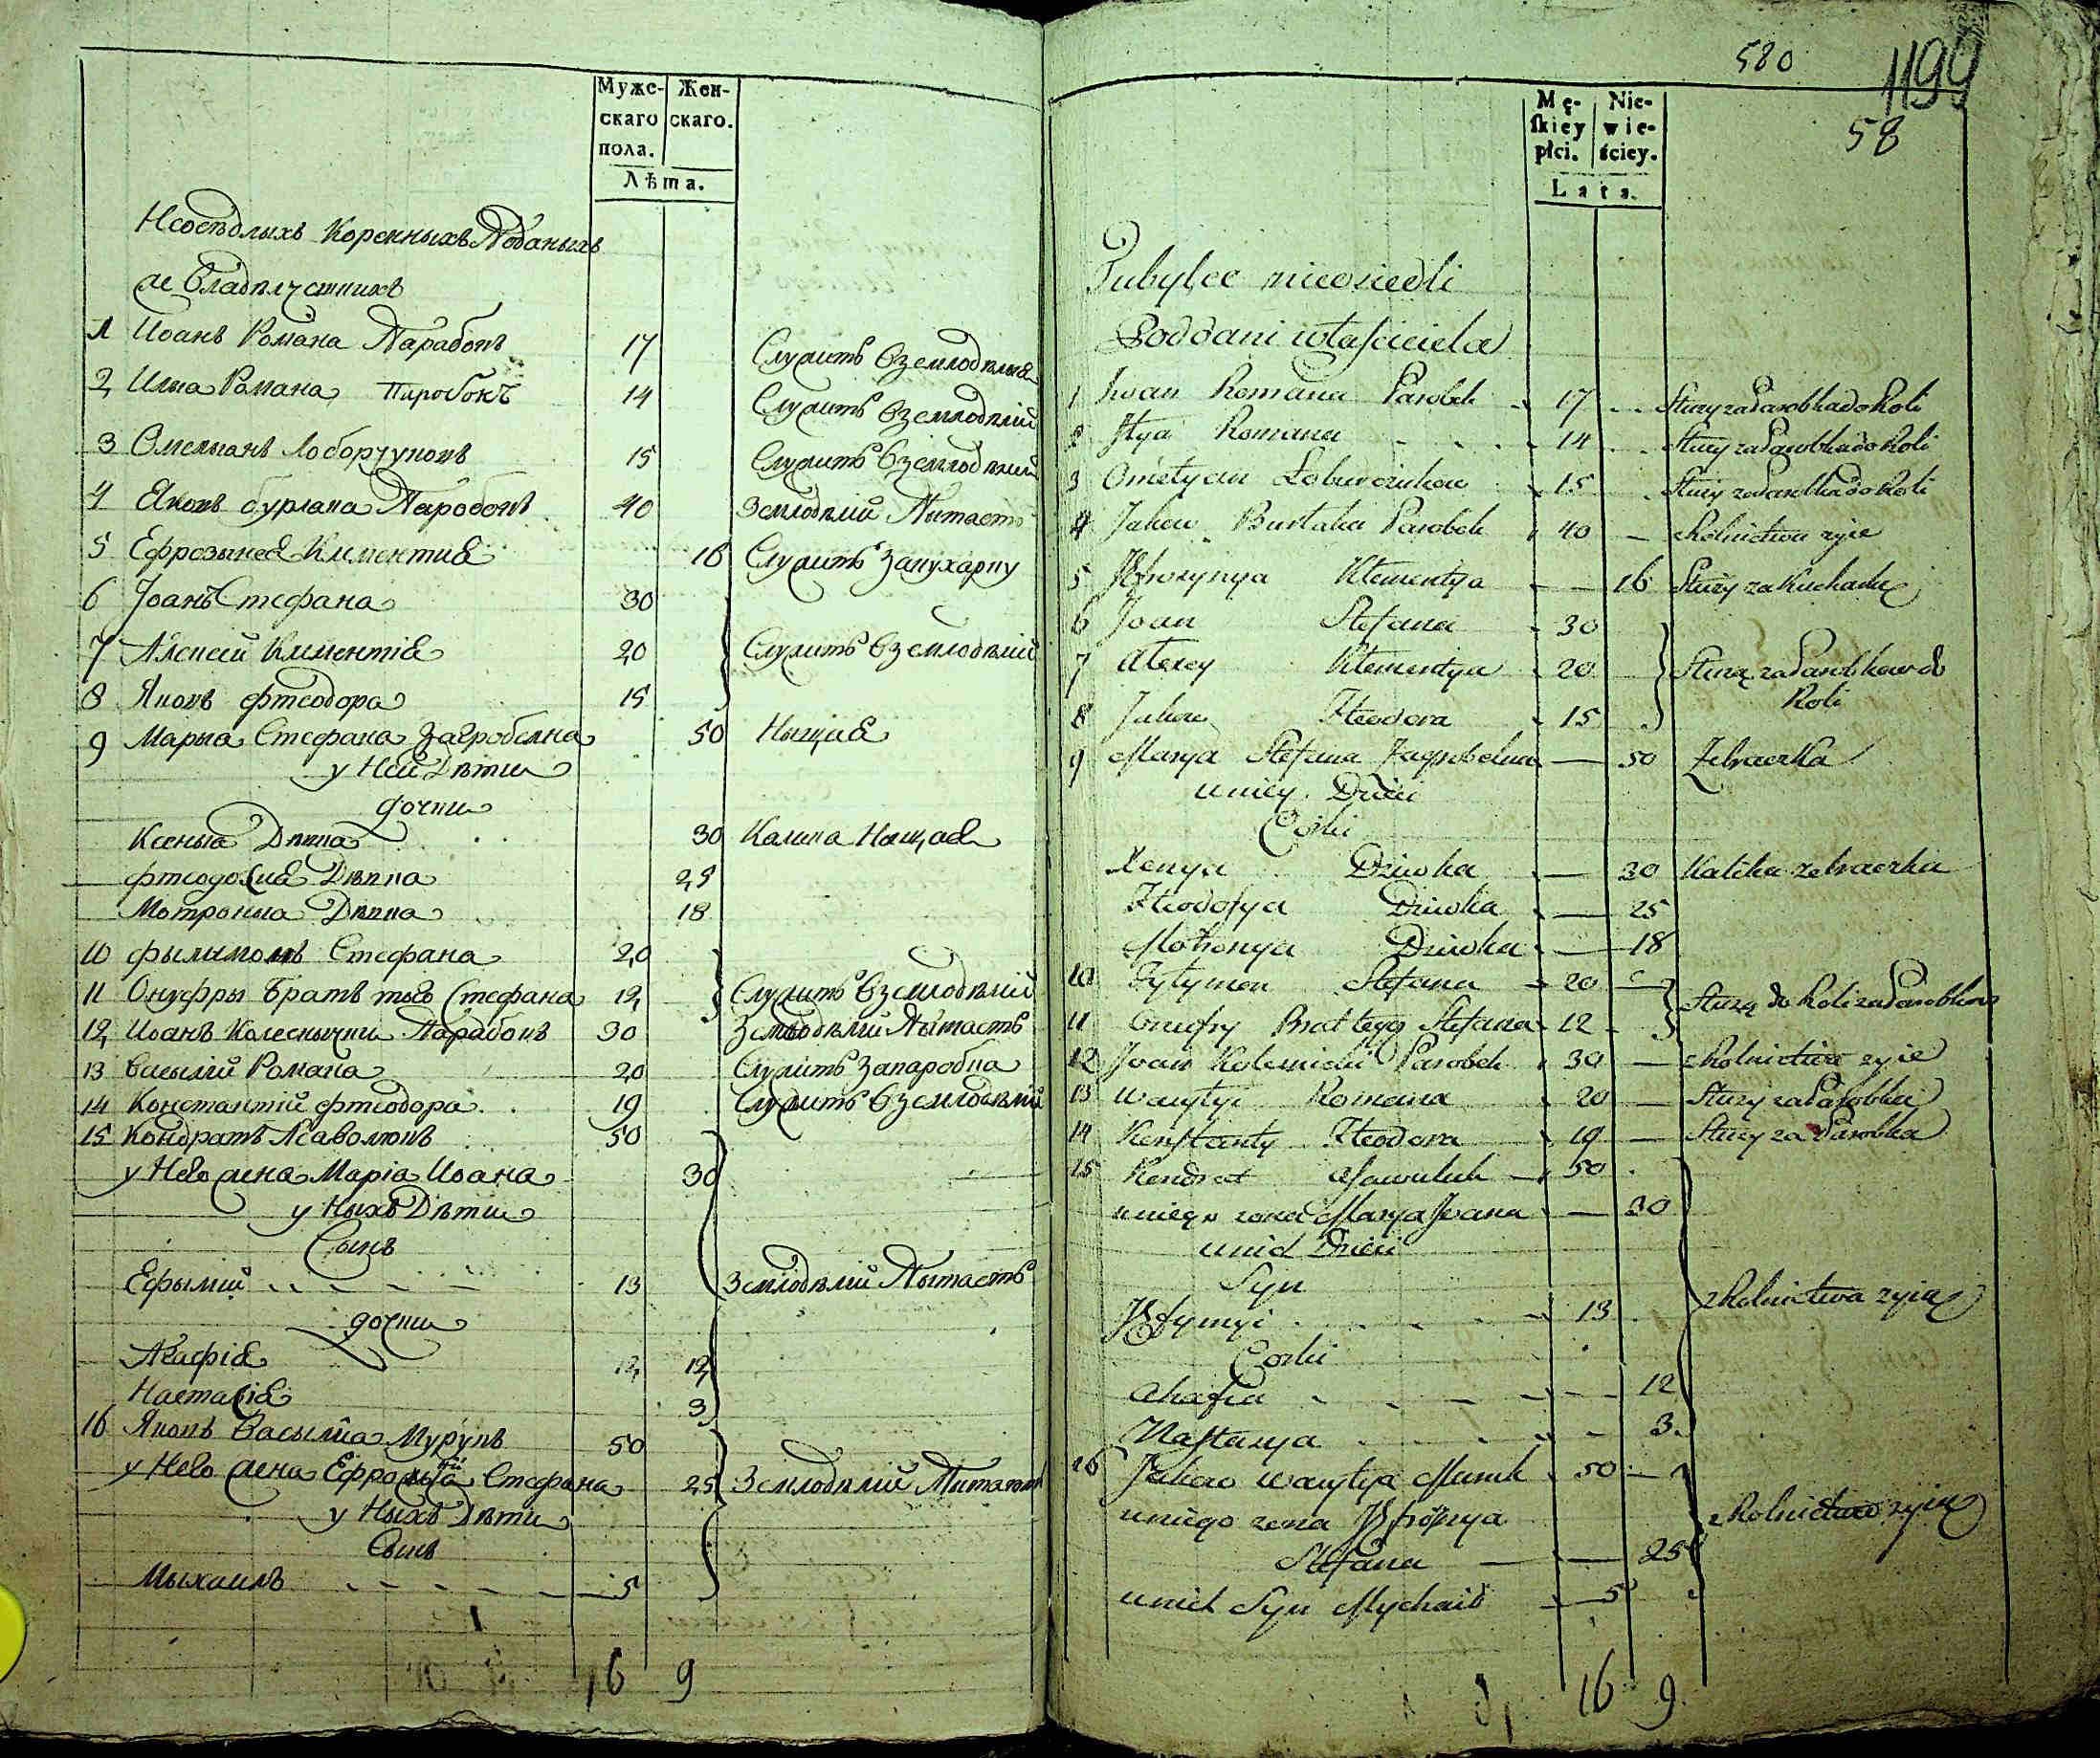 Муже-
скаго
пола.
Жен-
скаго.
Лѣта.
Неосѣдлыхъ Коренныхъ Подданыхъ
1 Иоанъ Романа Парабокъ 17 Служитъ в земледѣлии
2 Илиа Романа Паробокъ 14 Служитъ в земледѣлий
3 Омелианъ 15 Служитъ в земледѣлий
4 Яковъ бурлака Паробокъ 40 Земледѣлий Пытается
5 Ефрозыния Климентия 16 Служитъ за кухарку
6 Јоанъ Стефана 30
7 Алексей Климентія 20 Служитъ в земледѣлий
8 Яковъ Фтеодора 15
9 Марыа Стефана Загробелна 50 Ныщая
у Ней Дѣти
дочки
Ксеныа Дѣвка 30 Калика Нищая
Фтеодосия Дѣвка 25
Мотрона Дѣвка 18
10 Фылымонъ Стефана 20
11 Онуфры Братъ того Стефана 12 Служитъ в земледѣлий
12 Иоанъ Парабокъ 30 Земледѣлий Пытаетъ
13 Василий Романа 20 Служитъ за паробка
14 Константий Фтеодора 19 Служитъ в земледѣлий
15 Кондратъ 50
у Него жена Маріа Иоана 30
у Ныхъ Дѣти
Сынъ
Ефымий 13 Земледѣлий Пытаетъ
дочки
Агафія 12 12
Настасія 3
16 Яковъ Васылиа Мурукъ 50
у Него жена Стефана 25 Земледѣлий
у Ныхъ Дѣти
Сынъ
Мыхаилъ 5
16 9
580
1199
58
Mę-
ſkiey
płci.
Nie-
wie-
ściey.
Lata.
Tubylce nieosiedli
Poddani właſciciela
1 Iwan Romana Parobek 17 Służy za Parobka do Roli
2 Ilya Romana 14 Służy za Parobka do Roli
3 Omelyan 15 Służy za Parobka do Roli
4 Jakow Burlaka Parobek 40 z Rolnictwa żyie
5 Jefrozynya Klementya 16 Służy za Kucharkę
6 Joan Stefana 30
7 Alexey Klementya 20 Służą za Parobkow do
Roli
8 Jakow Fteodora 15
9 Marya Stefana Zagrobelna 50 Żebraczka
u niey Dzieci
Corki
Xenya Dziwka 30 Kalika żebraczka
Fteodosya Dziwka 25
Motronya Dziwka 18
10 Fylymon Stefana 20 Służą do Roli za Parobkow
11 Onufry Brat tego Stefana 12
12 Joan Parobek 30 z Rolnictwa żyie
13 Wasylyi Romana 20 Służy za Parobka
14 Konſtanty Fteodora 19 Służy za Parobka
15 Kondrat 50
u niego żona Marya Joana 30
u nich Dzieci
Syn
Jefymyi 13 z Rolnictwa żyią
Corki
Ahafia 12
Naſtasya 3
16 Jakow Wasylya Muruk 50
u niego żona z Rolnictwa żyią
Stefana 25
u nich Syn Mychaił 5
16 9